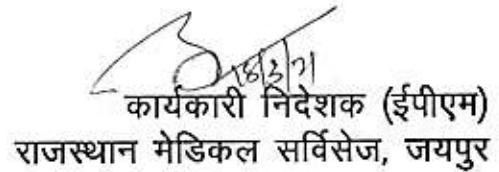 18/3/21
कार्यकारी निदेशक (ईपीएम)
राजस्थान मेडिकल सर्विसेज, जयपुर